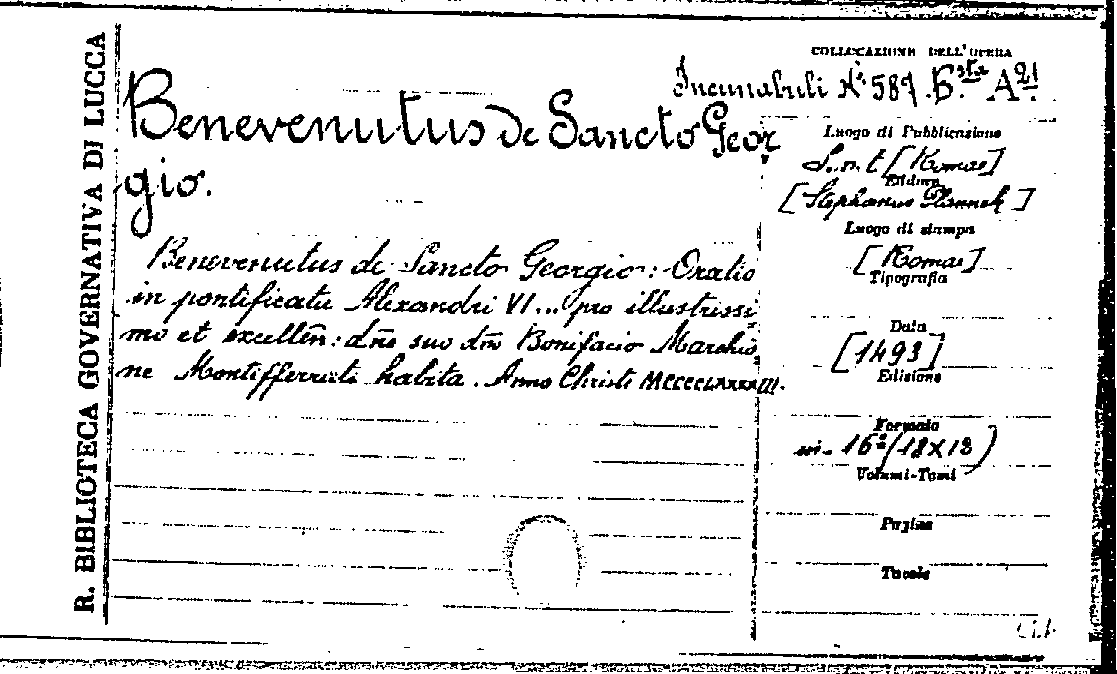 R. BIBLIOTECA GOVERNATIVA DI LUCCA
COLLOCAZIONE DELL'OPERA
Incunabuli N.º 587. B.sta A 21.
Benevenutus de Sancto Geor
gio.
Benevenutus de Sancto Georgio: Oratio
in pontificatu Alexandri VI... pro illustrissi
mo et excellen̄: dn̄e suo dn̄o Bonifacio Marchio
ne Montifferrati habita. Anno Christi MCCCCLXXXXIII.
Luogo di Pubblicazione
S.n.t [Romae]
Editore
[Stephanus Plannck]
Luogo di stampa
[Romae]
Tipografia
Data
[1493]
Edizione
Formato
in-16º (18X13)
Volumi-Tomi
Pagine
Tavole